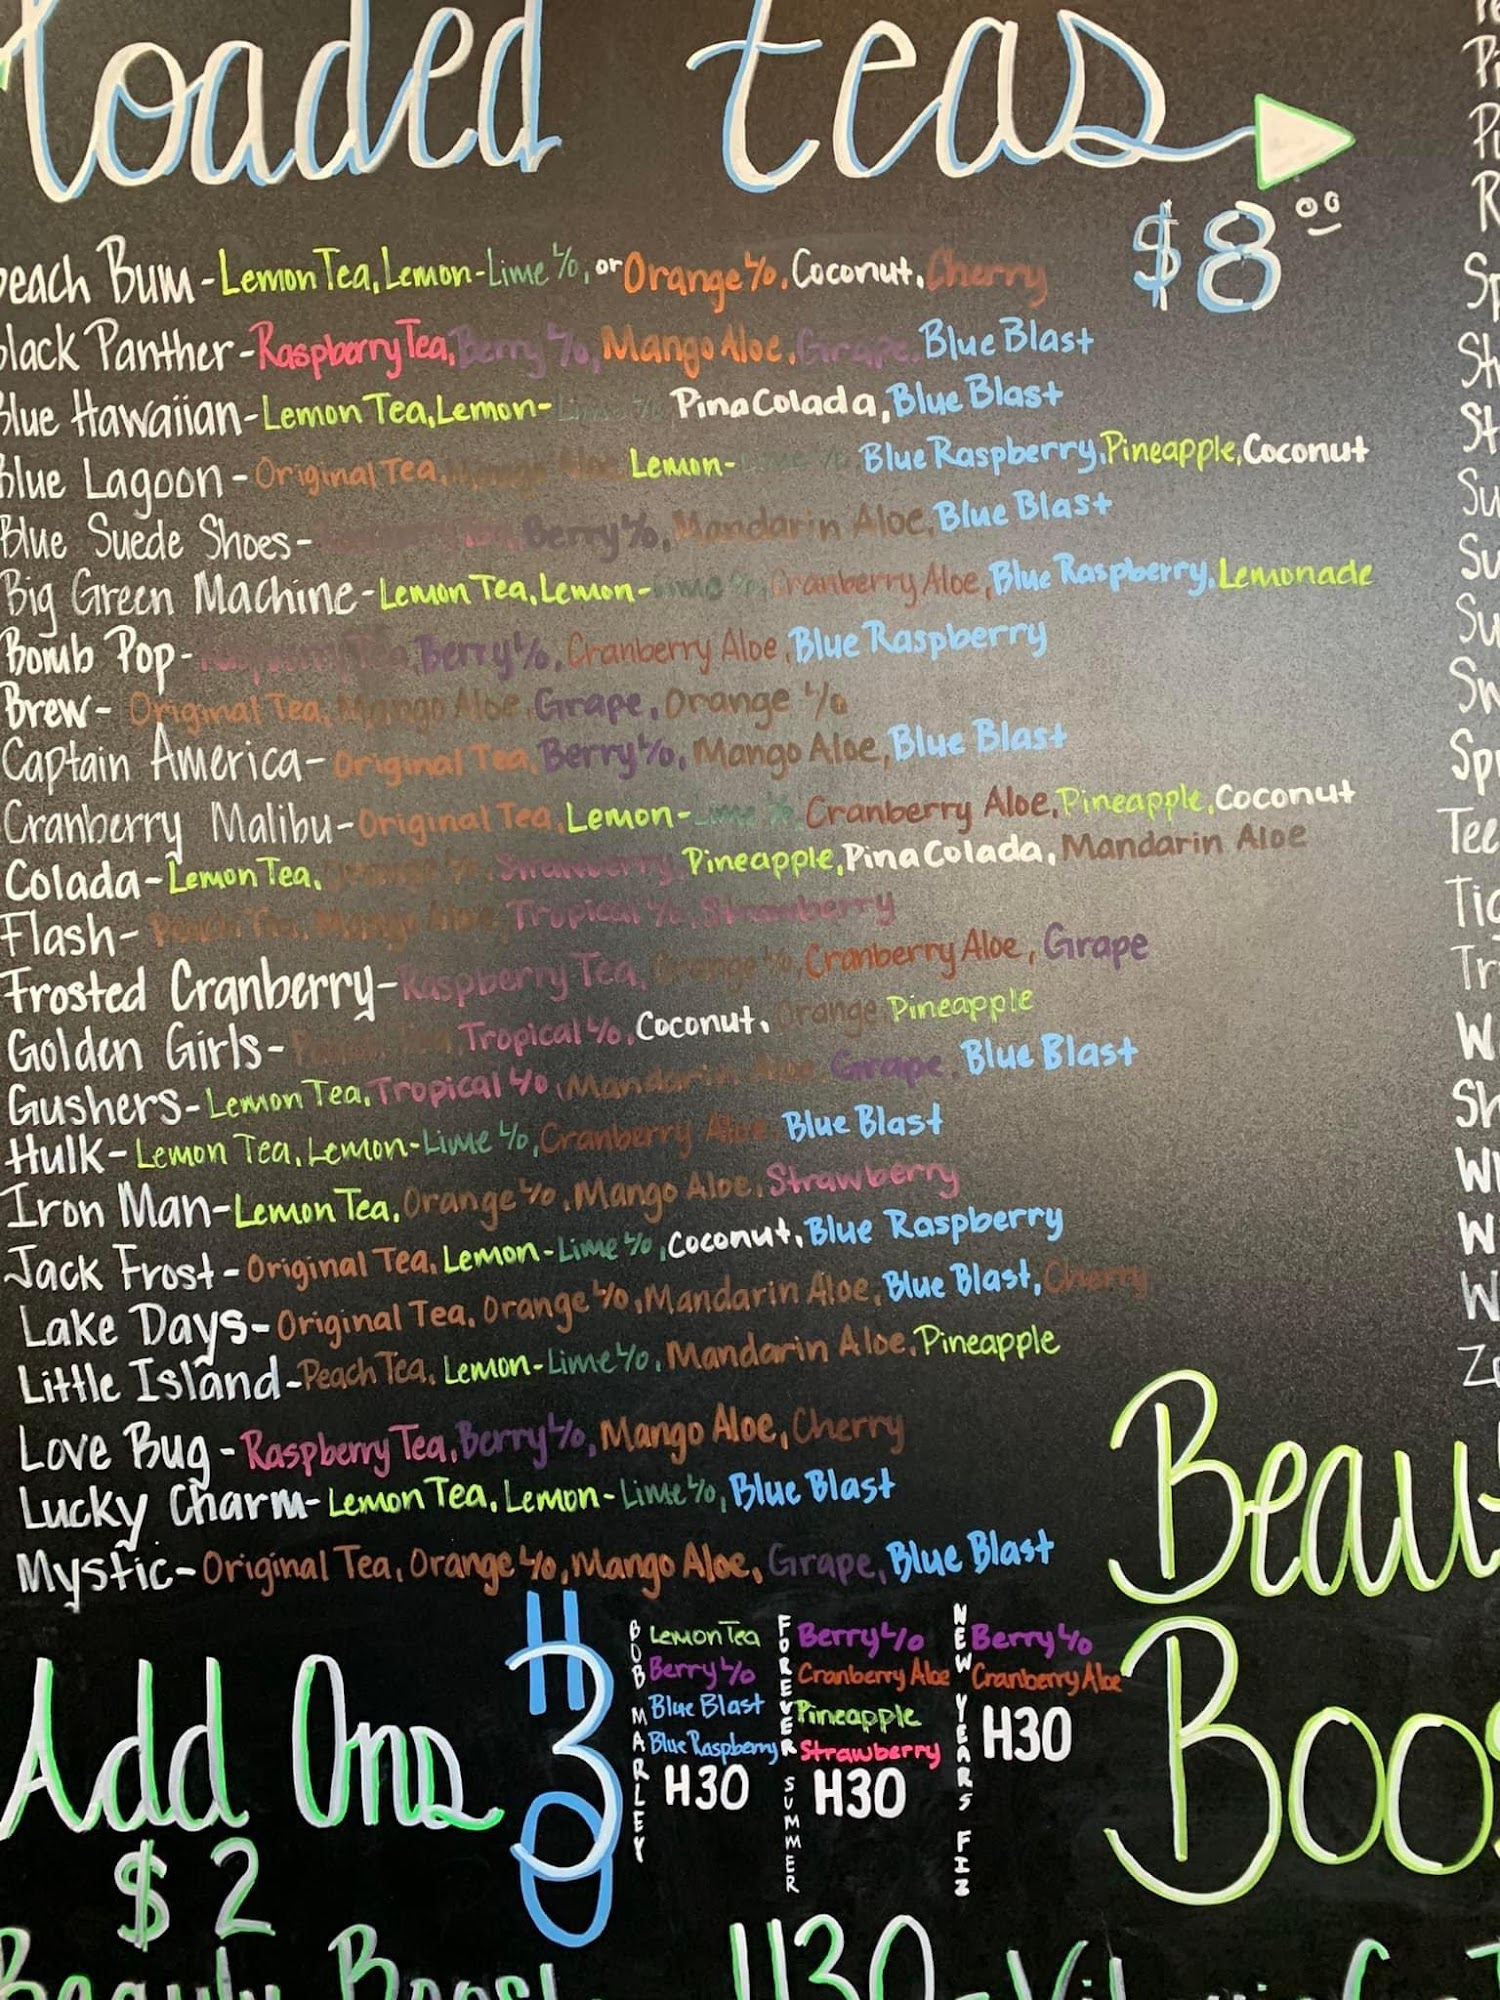 loaded teas
$8.00
Beach Bum - Lemon Tea, Lemon-Lime L/o, or Orange L/o, Coconut, Cherry
Black Panther - Raspberry Tea, Berry L/o, Mango Aloe, Grape, Blue Blast
Blue Hawaiian - Lemon Tea, Lemon-Lime L/o Pina Colada, Blue Blast
Blue Lagoon - Original Tea, Mango Aloe Lemon-Lime L/o Blue Raspberry, Pineapple, Coconut
Blue Suede Shoes - Raspberry Tea, Berry L/o, Mandarin Aloe, Blue Blast
Big Green Machine - Lemon Tea, Lemon-Lime L/o, Cranberry Aloe, Blue Raspberry, Lemonade
Bomb Pop - Raspberry Tea, Berry L/o, Cranberry Aloe, Blue Raspberry
Brew - Original Tea, Mango Aloe, Grape, Orange L/o
Captain America - Original Tea, Berry L/o, Mango Aloe, Blue Blast
Cranberry Malibu - Original Tea, Lemon-Lime L/o Cranberry Aloe, Pineapple, Coconut
Colada - Lemon Tea, Orange L/o, Strawberry, Pineapple, Pina Colada, Mandarin Aloe
Flash - Peach Tea, Mango Aloe, Tropical L/o, Strawberry
Frosted Cranberry - Raspberry Tea, Orange L/o, Cranberry Aloe, Grape
Golden Girls - Tea, Tropical L/o, Coconut, Orange Pineapple
Gushers - Lemon Tea, Tropical L/o, Mandarin Aloe Grape, Blue Blast
Hulk - Lemon Tea, Lemon-Lime L/o, Cranberry Aloe, Blue Blast
Iron Man - Lemon Tea, Orange L/o, Mango Aloe, Strawberry
Jack Frost - Original Tea, Lemon-Lime L/o, Coconut, Blue Raspberry
Lake Days - Original Tea, Orange L/o, Mandarin Aloe, Blue Blast, Cherry
Little Island - Peach Tea, Lemon-Lime L/o, Mandarin Aloe, Pineapple
Love Bug - Raspberry Tea, Berry L/o, Mango Aloe, Cherry
Lucky Charm - Lemon Tea, Lemon-Lime L/o, Blue Blast
Mystic - Original Tea, Orange L/o, Mango Aloe, Grape, Blue Blast
Add Ons
$2
H30
BOB MARLEY
Lemon Tea
Berry L/o
Blue Blast
Blue Raspberry
H30
FOREVER SUMMER
Berry L/o
Cranberry Aloe
Pineapple
Strawberry
H30
NEW YEARS FIZ
Berry L/o
Cranberry Aloe
H30
Beau
Boos
Beauty Boost
H30 -